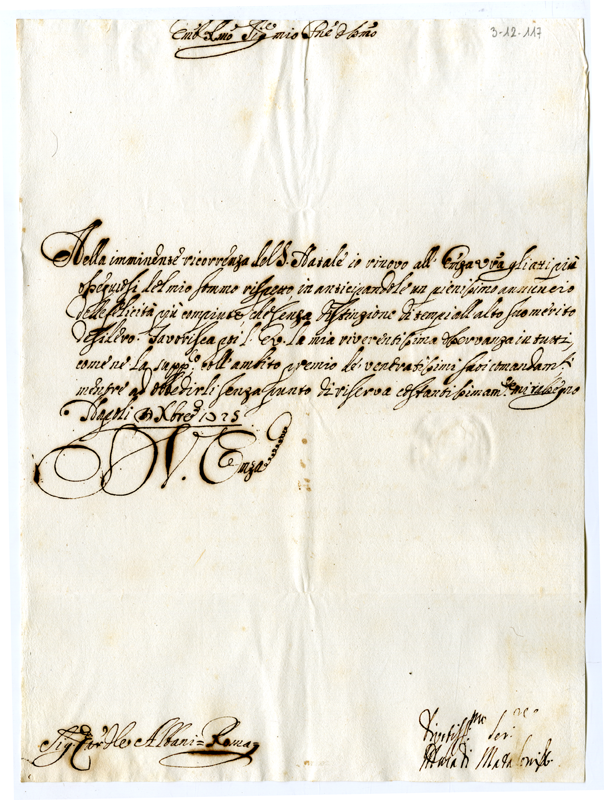 3-12-117
Em.o R.mo Sig.re mio Pne Col.mo
Nella imminente ricorrenza del S. Natale io rinovo all' Emza Vra gli atti più
ossequiosi del mio sommo rispetto in anticipandole un pienissimo annuncio
delle felicità più compiute, che senza distinzione di tempi all'alto suo merito
desidero. Favorisca poi l'E.V. la mia riverentissima osservanza in tutti,
come ne la supp.co coll'ambito premio de' veneratissimi suoi comandam.ti
mentre ad obbedirli senza punto di riserva costantissimam.te mi rassegno
Napoli Xbre 1725
D V. Emza
Sig.r Card.le Albani = Roma
Div.mo ser.re
Duca di Matalona